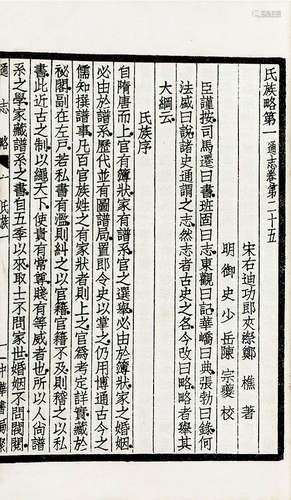 氏族略第一 通志卷第二十五
宋右迪功郎夾漈鄭 樵 著
明御史少岳陳宗夔校
臣謹按司馬遷曰書班固曰志東觀曰記華嶠曰典張勃曰錄何
法盛曰說諸史通謂之志然志者古史之名今改曰略略者舉其
大綱云
氏族序
自隋唐而上官有簿狀家有譜系官之選舉必由於簿狀家之婚姻
必由於譜系歷代並有圖譜局置郎令史以掌之仍用博通古今之
儒知撰譜事凡百官族姓之有家狀者則上之官爲考定詳實藏於
秘閣副在左戶若私書有濫則糾之以官籍官籍不及則稽之以私
書此近古之制以繩天下使貴有常尊賤有等威者也所以人尙譜
系之學家藏譜系之書自五季以來取士不問家世婚姻不問閥閱
通志略 氏族一
一 中華書局聚